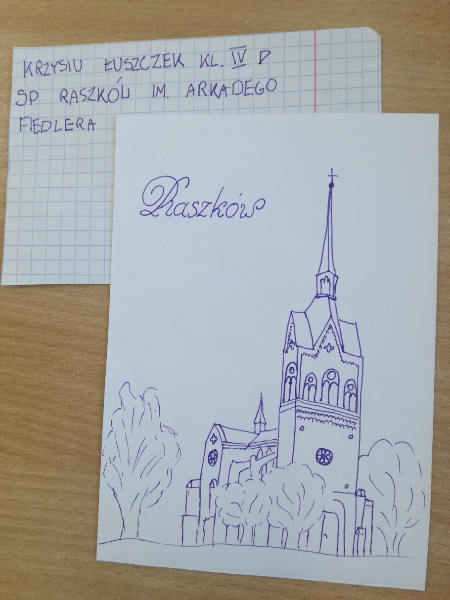 KRZYSIU ŁUSZCZEK KL. IV D
SP RASZKÓW IM. ARKADEGO
FIEDLERA
Raszków